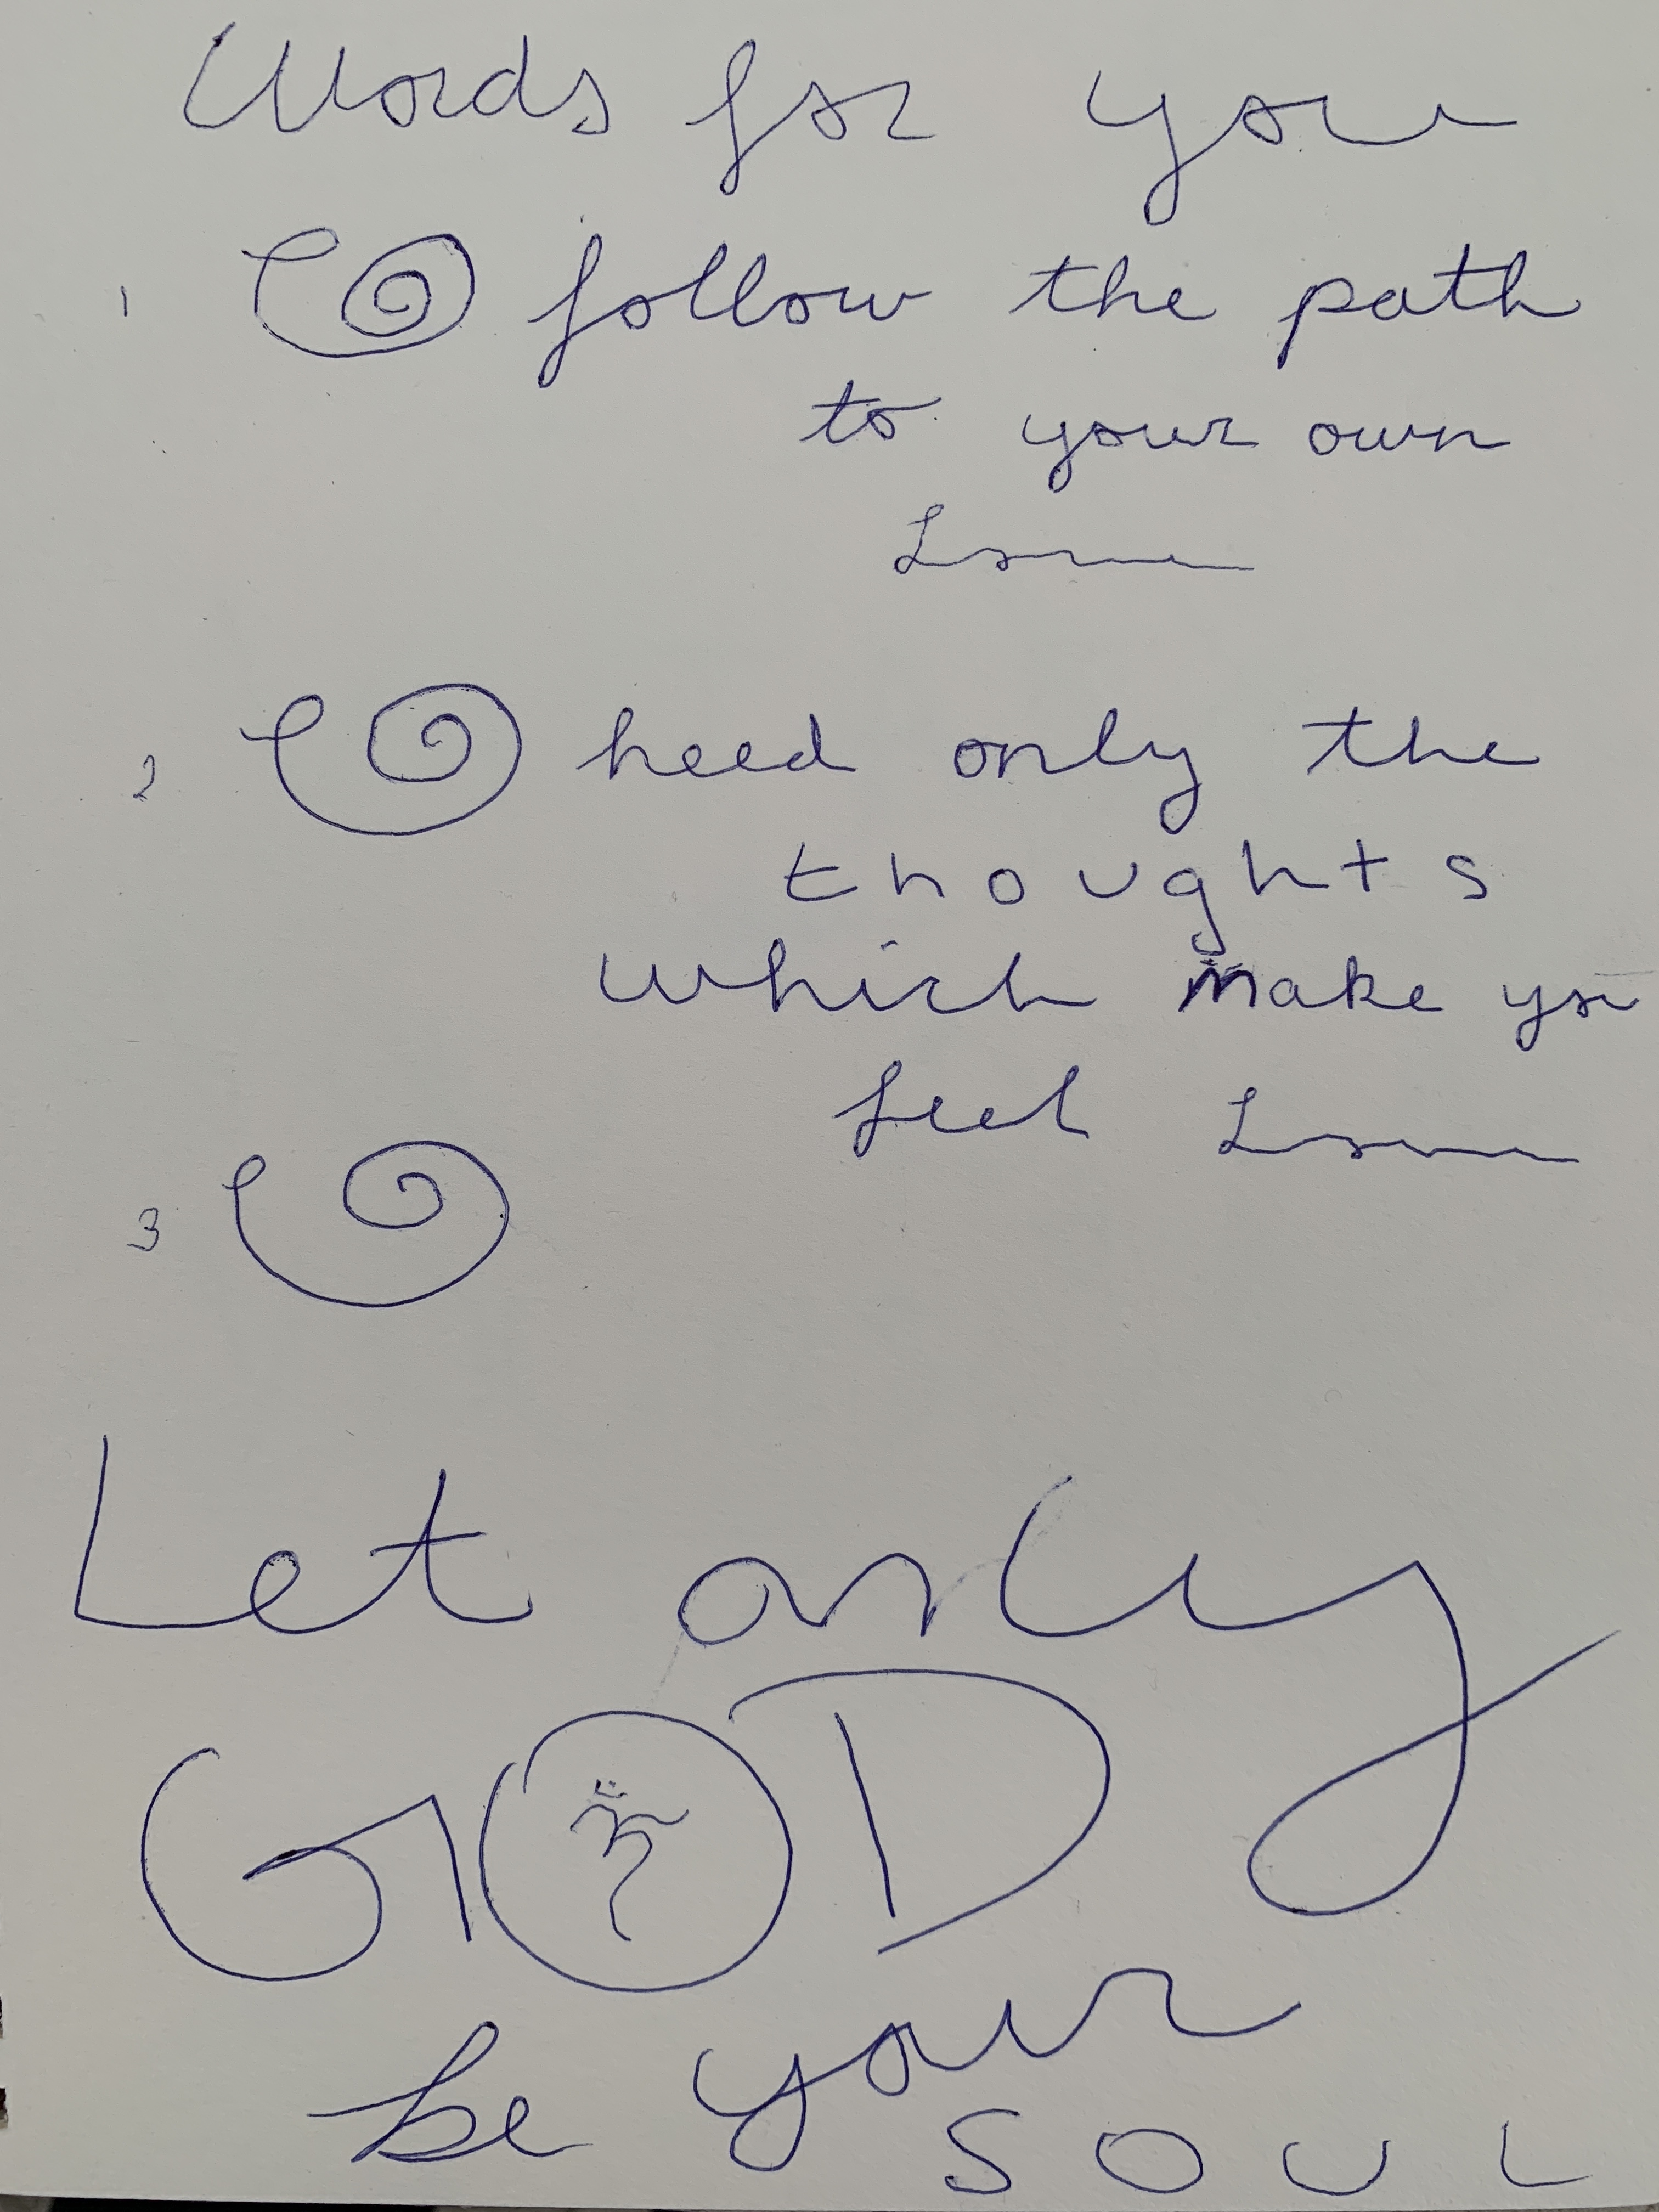 Words for you
1 follow the path
to your own
Love
2 heed only the
thoughts
which make you
feel Love
3
Let only
GOD
be your
SOUL